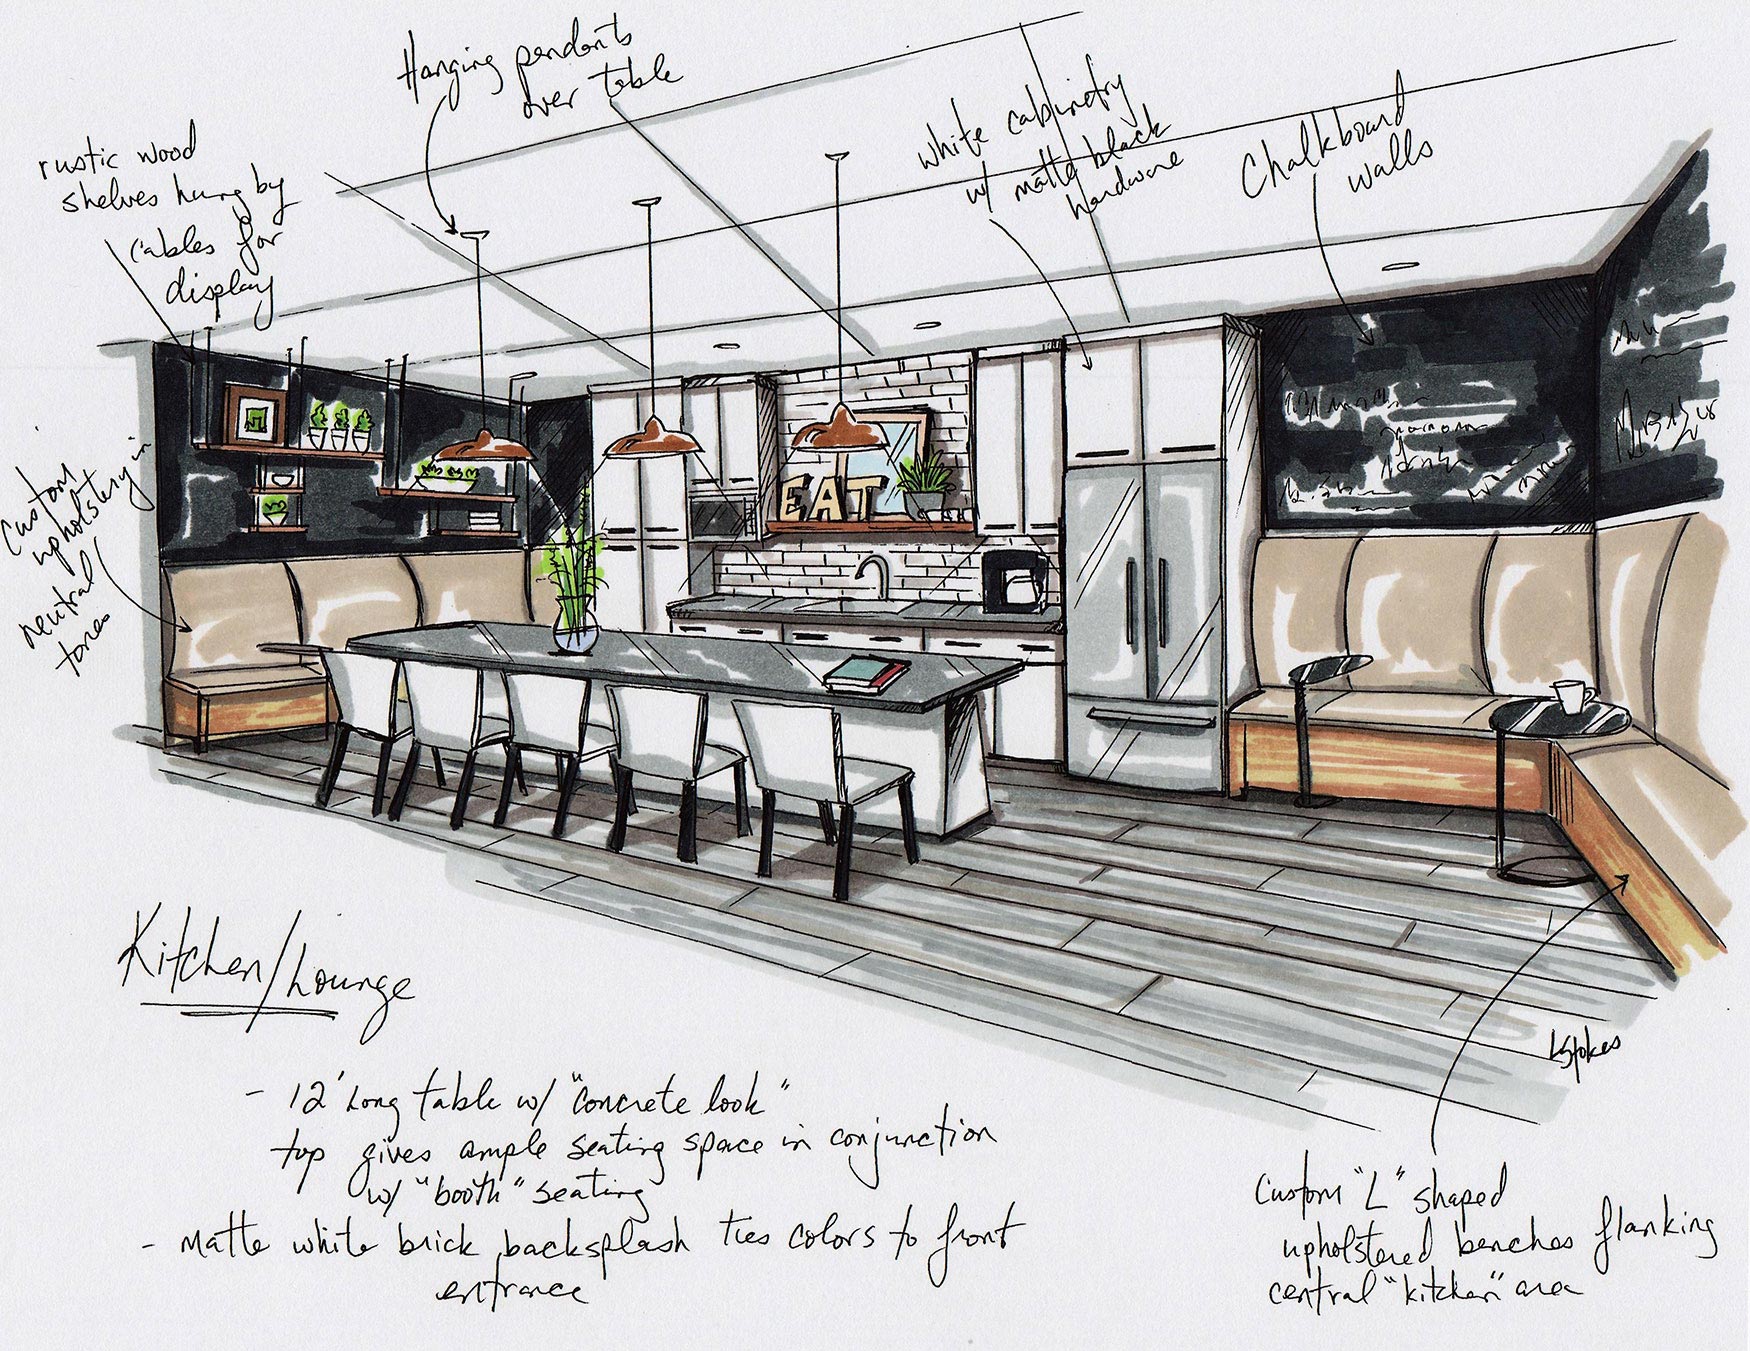 Hanging pendants
over table
rustic wood
shelves hung by
cables for
display
white cabinetry
w/ matte black
hardware
Chalkboard
walls
Custom
upholstery in
neutral
tones
EAT
Kitchen/Lounge
- 12' Long table w/ "concrete look"
top gives ample seating space in conjunction
w/ "booth" seating
- Matte white brick backsplash ties colors to front
entrance
LStokes
Custom "L" shaped
upholstered benches flanking
central "kitchen" area